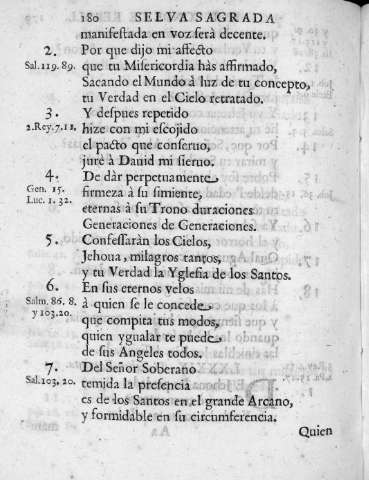 180 SELVA SAGRADA
manifeſtada en voz ſerà decente.
2. Por que dijo mi aſfecto
Sal. 119. 89. que tu Miſericordia hàs affirmado,
Sacando el Mundo à luz de tu concepto,
tu Verdad en el Cielo retratado.
3. Y deſpues repetido
2. Rey. 7. 11. hize con mi eſcojido
el pacto que conſeruo,
jurè à Dauid mi ſieruo.
4. De dàr perpetuamente
Gen. 15. firmeza à ſu ſimiente,
Luc. 1. 32. eternas à ſu Trono duraciones
Generaciones de Generaciones.
5. Confeſſaràn los Cielos,
Jehoua, milagros tantos,
y tu Verdad la Ygleſia de los Santos.
6. En sus eternos velos
Salm. 86. 8. à quien se le concede
y 103. 20. que compita tus modos,
quien ygualar te puede
de sus Angeles todos.
7. Del Señor Soberano
Sal. 103. 20. temida la preſencia
es de los Santos en el grande Arcano,
y formidable en ſu circumferencia.
Quien